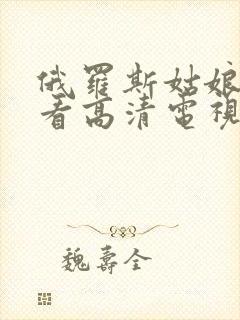 俄羅斯姑娘
看高清電視
魏壽全